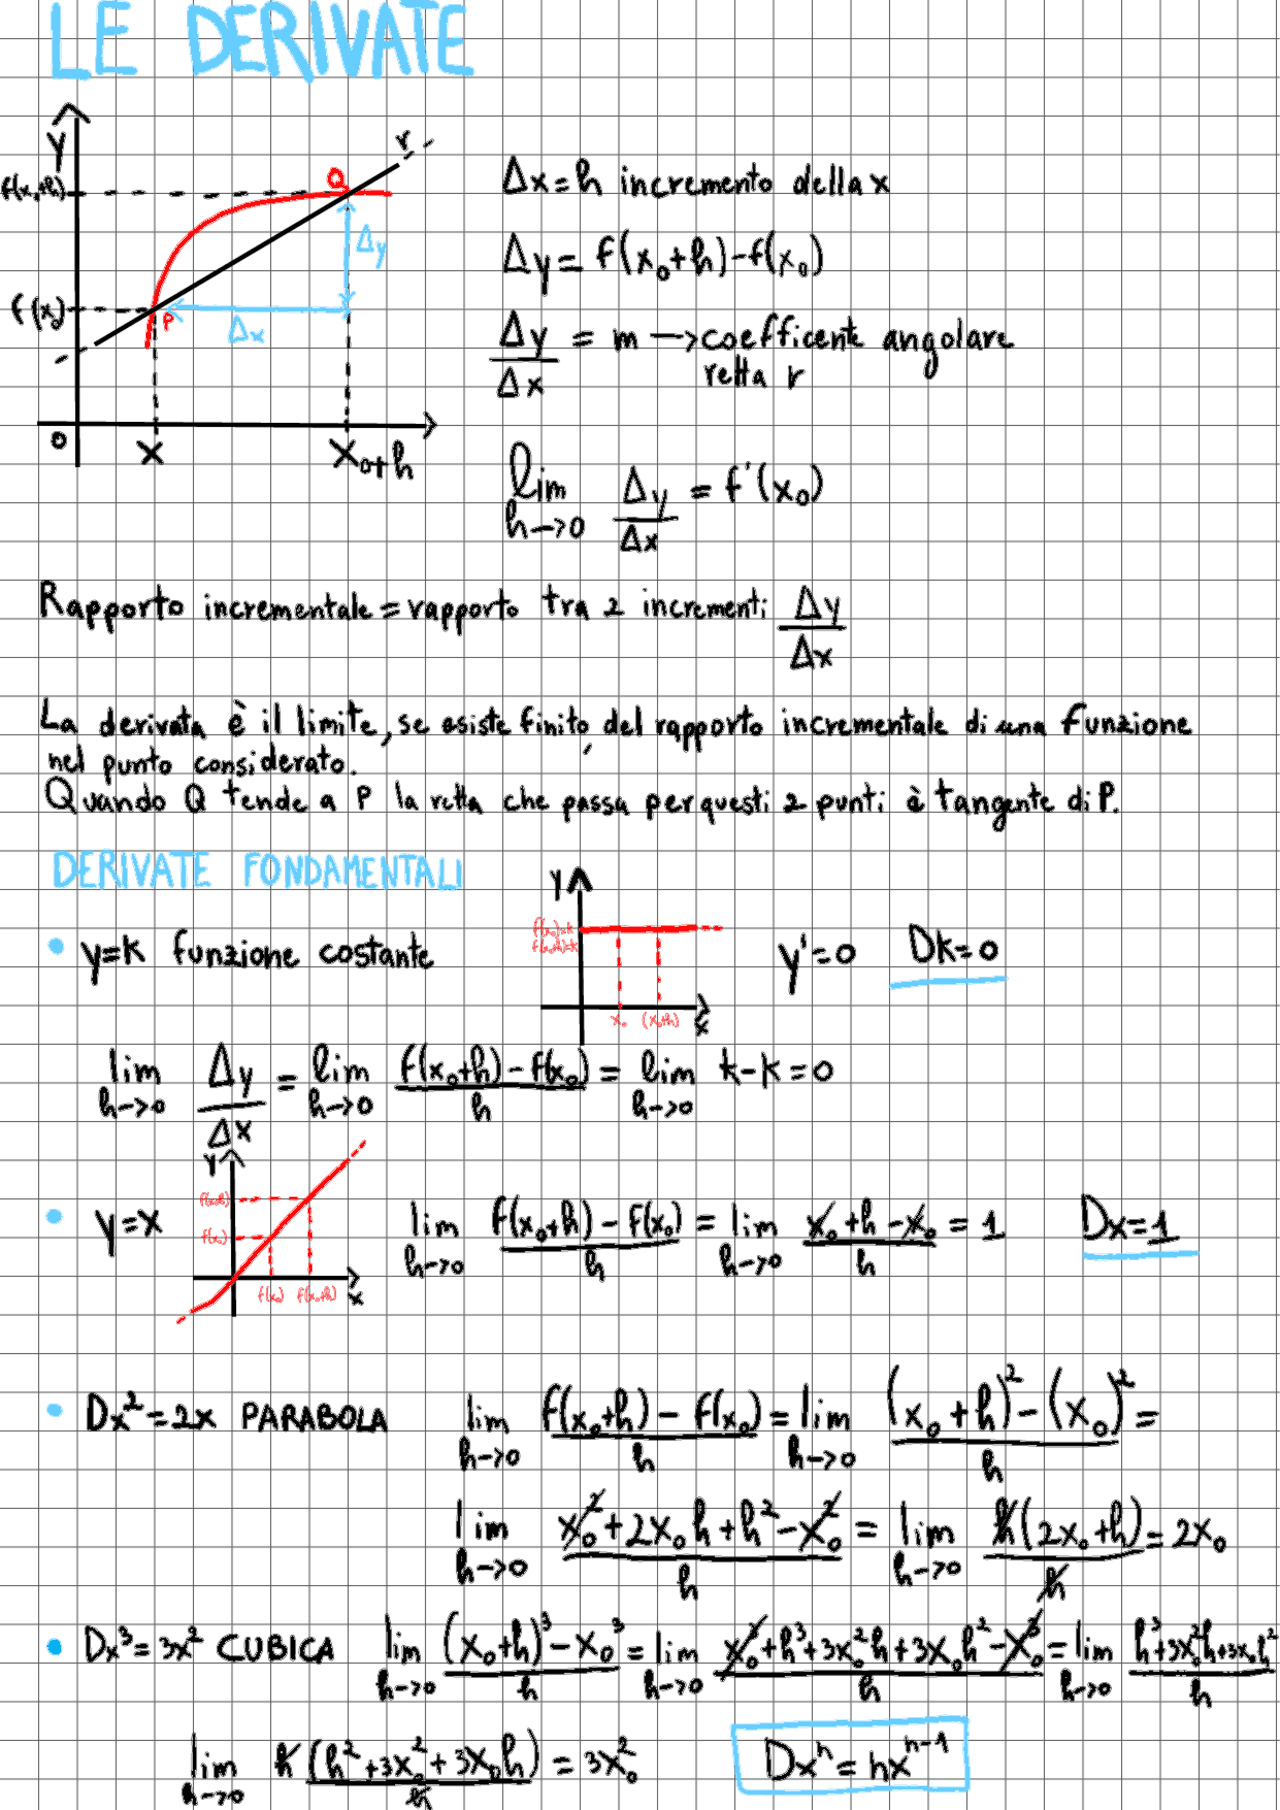 LE DERIVATE
y
r
f(x₀+h)
Q
Δy
f(x₀)
P
Δx
0
x
x₀+h
Δx = h incremento della x
Δy = f(x₀+h)-f(x₀)
Δy/Δx = m → coefficente angolare
retta r
lim h→0 Δy/Δx = f'(x₀)
Rapporto incrementale = rapporto tra 2 incrementi Δy/Δx
La derivata è il limite, se esiste finito, del rapporto incrementale di una funzione
nel punto considerato.
Quando Q tende a P la retta che passa per questi 2 punti è tangente di P.
DERIVATE FONDAMENTALI
• y=k funzione costante
y
f(x₀)=k
f(x₀+h)=k
x₀ (x₀+h)
x
y'=0 Dk=0
lim h→0 Δy/Δx = lim h→0 (f(x₀+h)-f(x₀))/h = lim h→0 k-k=0
• y=x
y
f(x₀+h)
f(x₀)
f(x₀) f(x₀+h)
x
lim h→0 (f(x₀+h)-f(x₀))/h = lim h→0 (x₀+h-x₀)/h = 1 Dx=1
• Dx²=2x PARABOLA lim h→0 (f(x₀+h)-f(x₀))/h = lim h→0 ((x₀+h)²-(x₀)²)/h =
lim h→0 (x₀²+2x₀h+h²-x₀²)/h = lim h→0 h(2x₀+h)/h = 2x₀
• Dx³=3x² CUBICA lim h→0 ((x₀+h)³-x₀³)/h = lim h→0 (x₀³+h³+3x₀²h+3x₀h²-x₀³)/h = lim h→0 (h³+3x₀²h+3x₀h²)/h
lim h→0 h(h²+3x₀²+3x₀h)/h = 3x₀² Dxⁿ=nxⁿ⁻¹